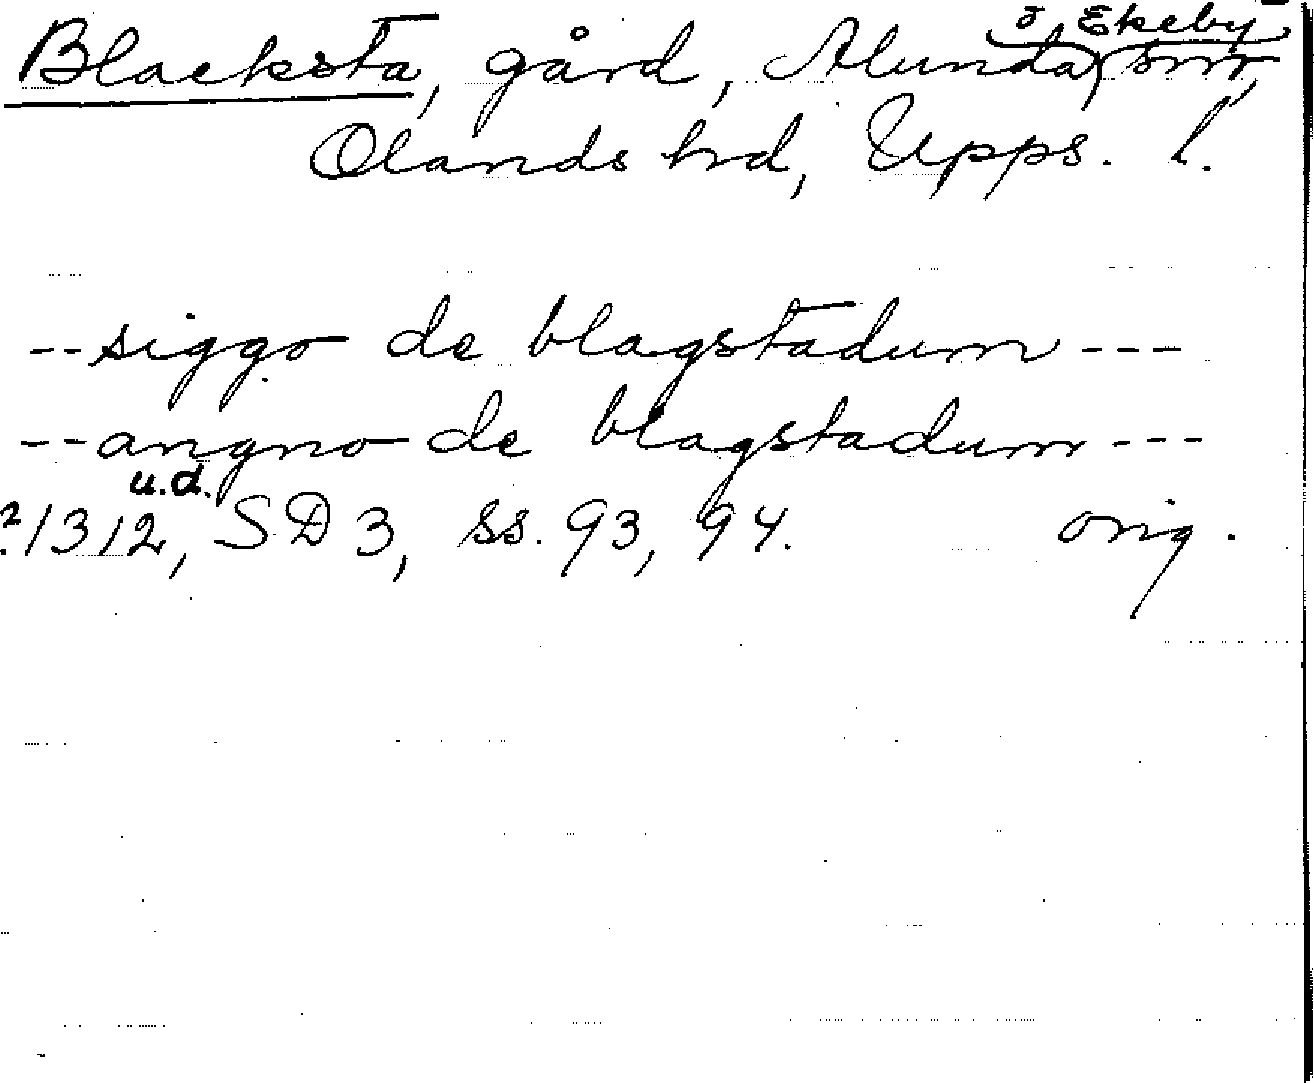 Blacksta, gård, Alunda o. Ekeby snr,
Olands hd, Upps. l.
--siggo de blagstadum---
--angno de blagstadum---
u.d.
?1312, SD 3, ss. 93, 94. orig.